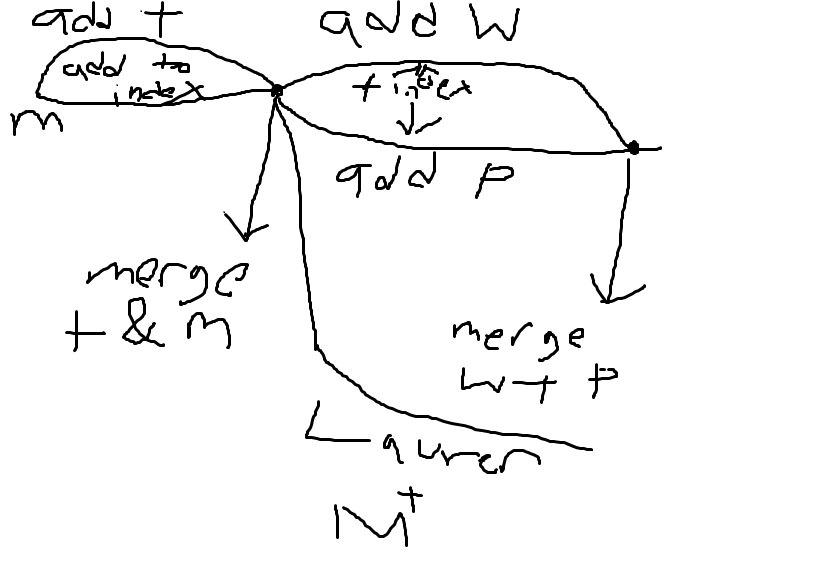 add t
add to
index
m
add W
+ index
add P
merge
t & m
merge
W + P
Lauren
M+